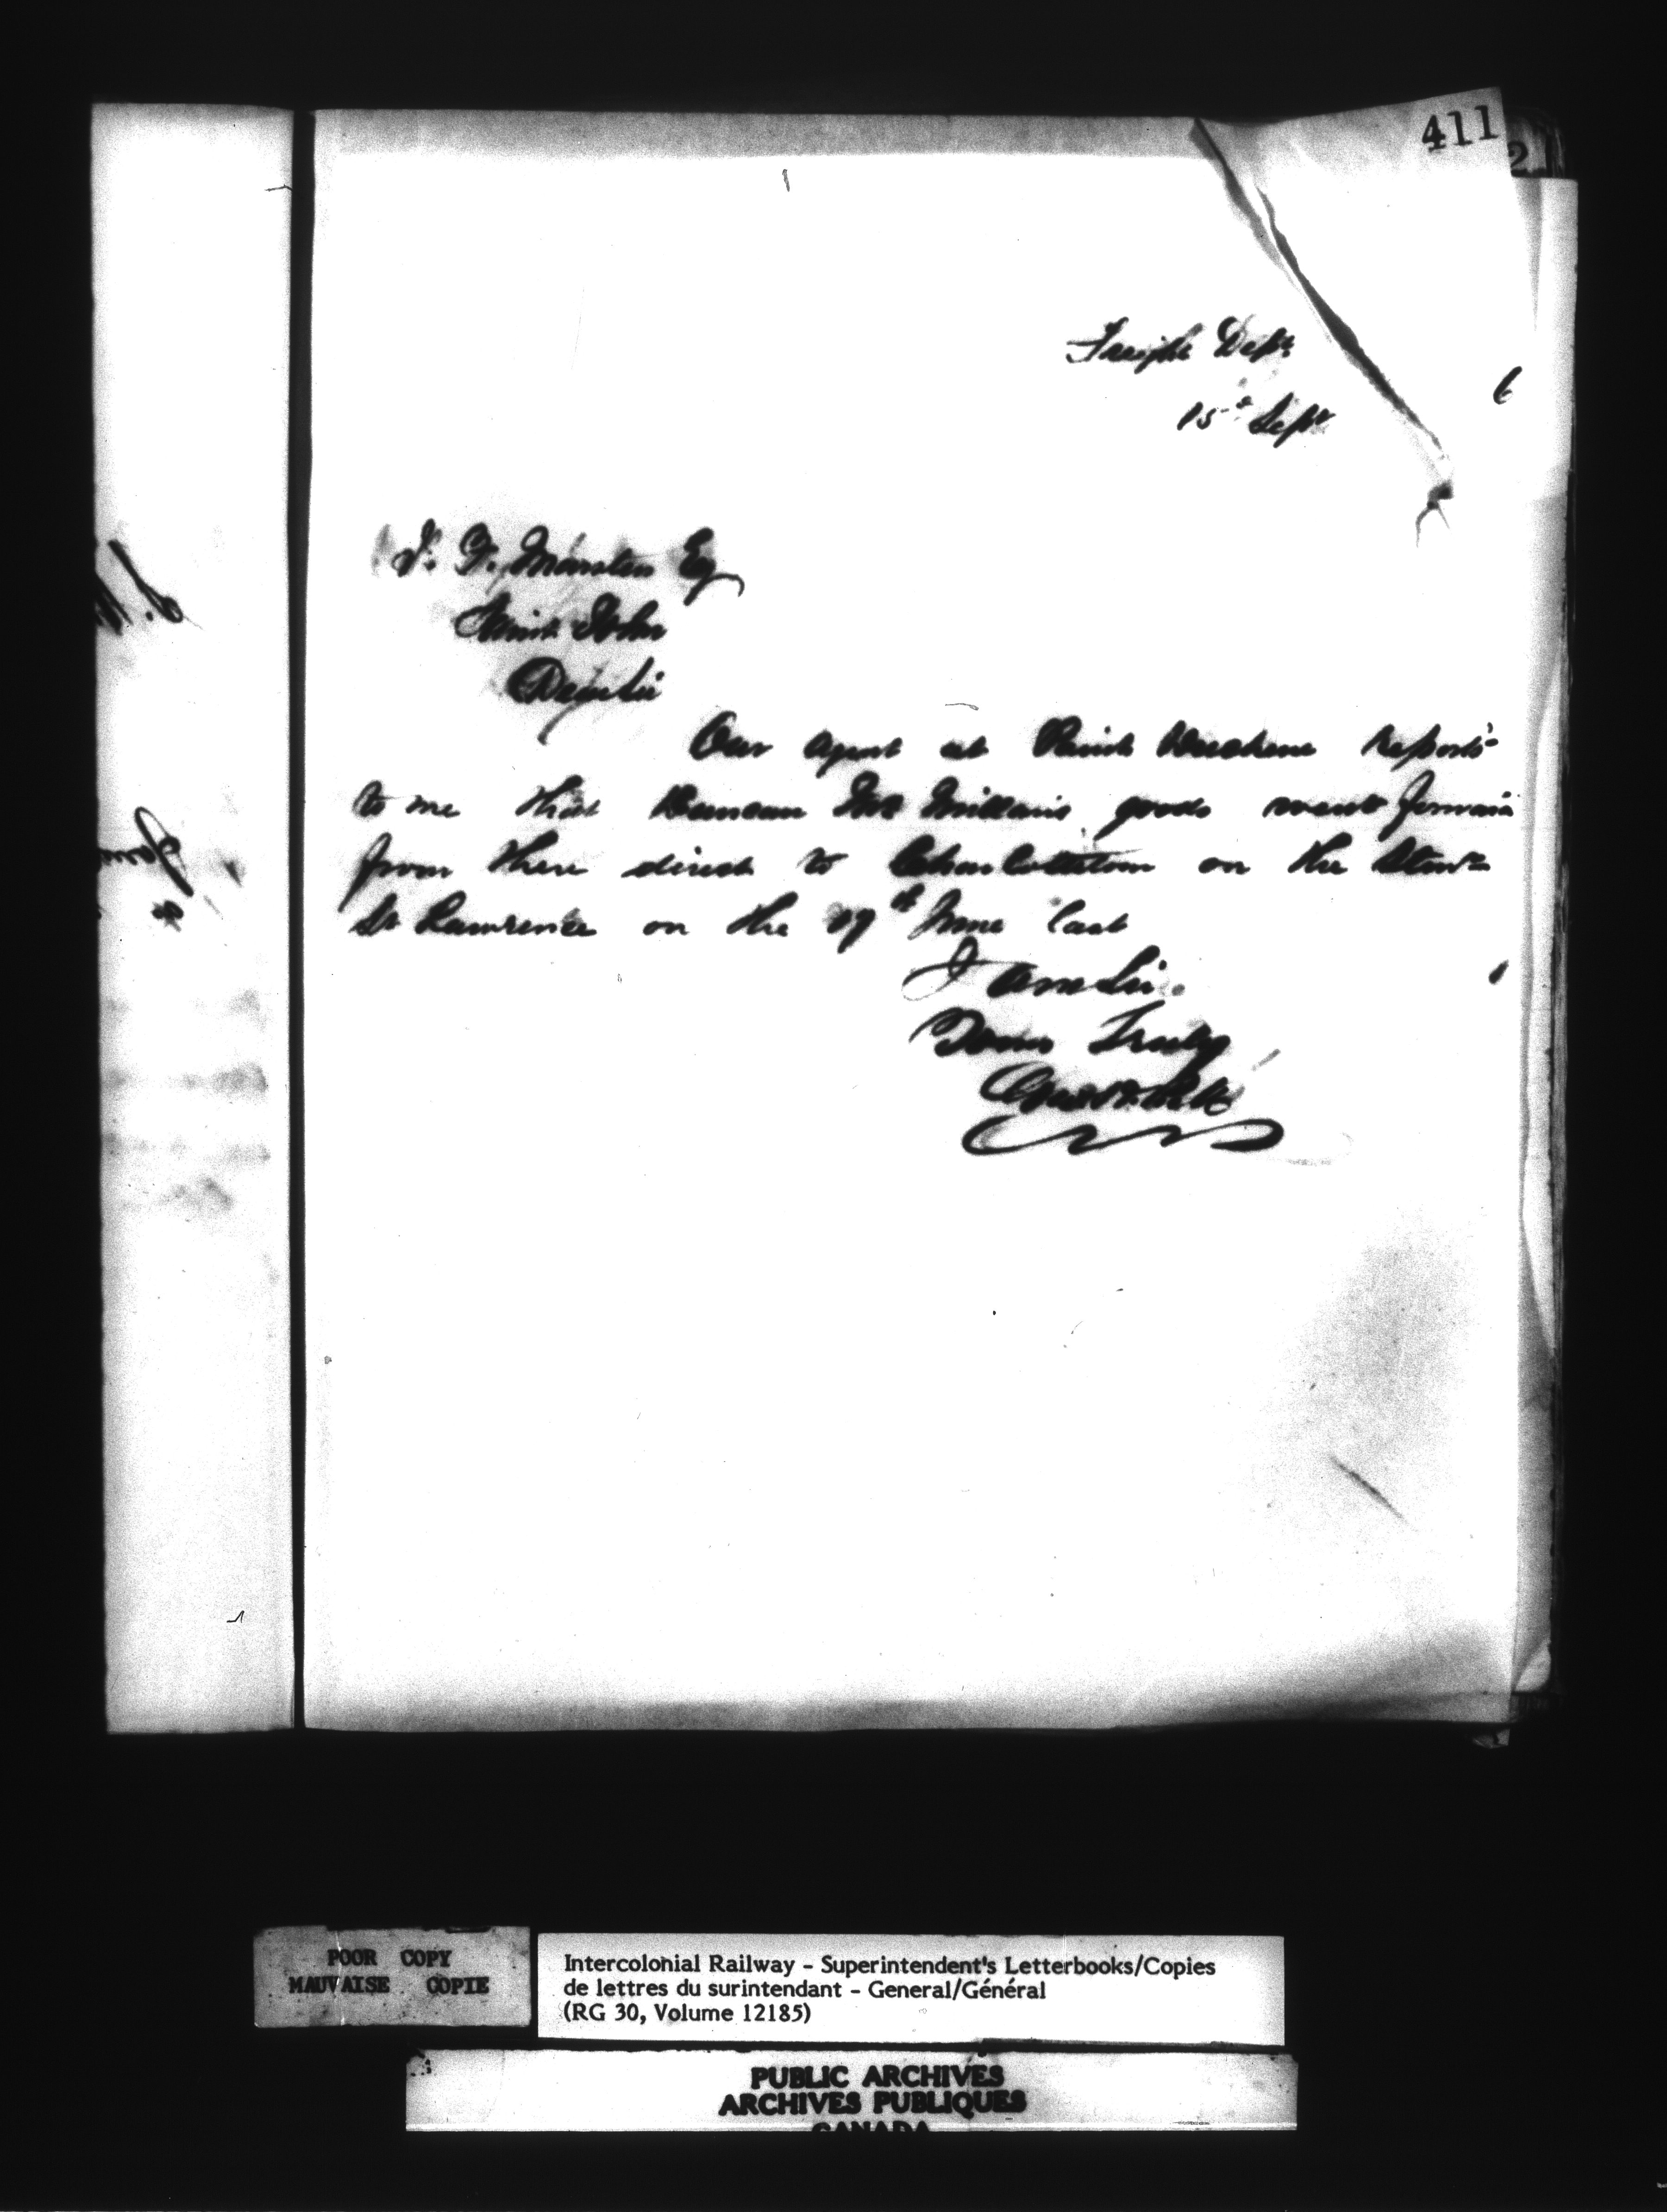 411
2
6
Freight Dept
15th Sept
J. F. Marsters Esq
Saint John
Dear Sir
Our agent at Point Duchene reports
to me that Duncan McMillan's goods went forward
from there direct to Charlottetown on the Stmr
St Lawrence on the 19th June last
I am Sir
Yours Truly
POOR COPY
MAUVAISE COPIE
Intercolonial Railway - Superintendent's Letterbooks/Copies
de lettres du surintendant - General/Général
(RG 30, Volume 12185)
PUBLIC ARCHIVES
ARCHIVES PUBLIQUES
CANADA